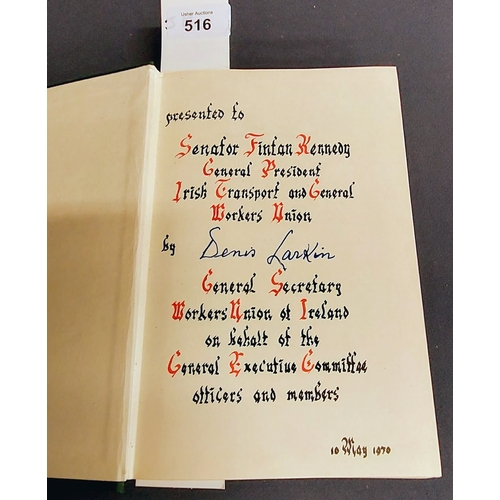 Usher Auctions
516
presented to
Senator Fintan Kennedy
General President
Irish Transport and General
Workers Union
by Denis Larkin
General Secretary
Workers Union of Ireland
on behalf of the
General Executive Committee
officers and members
10 May 1970